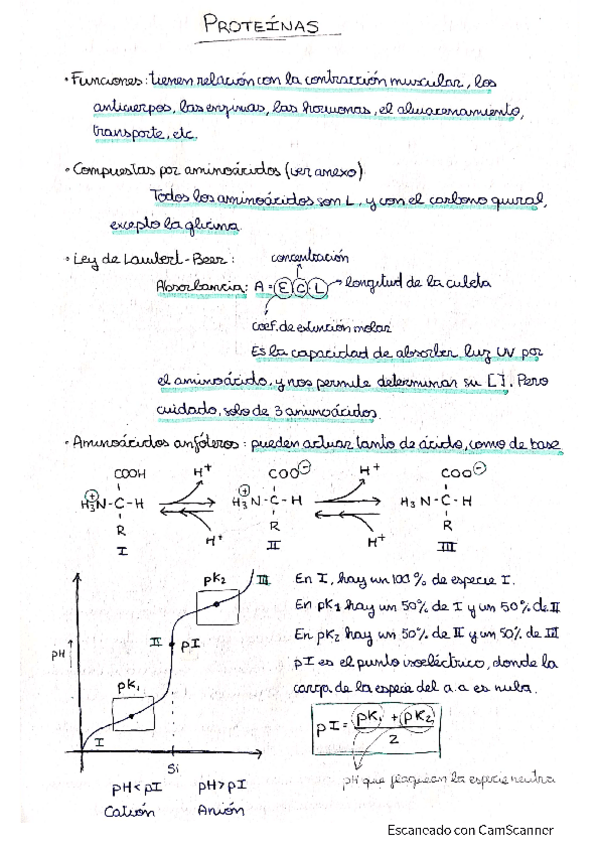 PROTEÍNAS
· Funciones: tienen relación con la contracción muscular, los
anticuerpos, las enzimas, las hormonas, el almacenamiento,
transporte, etc.
· Compuestas por aminoácidos (ver anexo)
Todos los aminoácidos son L, y con el carbono quiral,
excepto la glicina
· Ley de Lambert-Beer: concentración
Absorbancia: A = E C L → longitud de la cubeta
coef. de extinción molar
Es la capacidad de absorber luz UV por
el aminoácido, y nos permite determinar su [ ]. Pero
cuidado, solo de 3 aminoácidos.
· Aminoácidos anfóteros: pueden actuar tanto de ácido, como de base
COOH H⁺ COO⊖ H⁺ COO⊖
H₃N - C - H H₃N - C - H H₃N - C - H
R H⁺ R H⁺ R
I II III
pK₂ III
II pI
pH
pK₁
I
Si
pH<pI pH>pI
Catión Anión
En I, hay un 100% de especie I.
En pK₁ hay un 50% de I y un 50% de II
En pK₂ hay un 50% de II y un 50% de III
pI es el punto isoeléctrico, donde la
carga de la especie del a.a es nula.
pI = pK₁ + pK₂
2
pH que flanquean la especie neutra
Escaneado con CamScanner